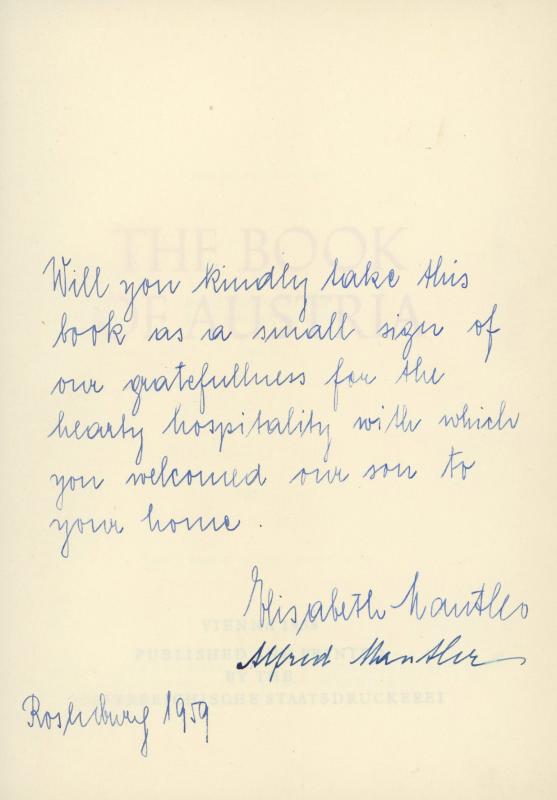 THE BOOK
OF AUSTRIA
Will you kindly take this
book as a small sign of
our gratefullness for the
hearty hospitality with which
you welcomed our son to
your home.
Elisabeth Mantler
Alfred Mantler
VIENNA
PUBLISHED
BY THE
STAATSDRUCKEREI
Rosenburg 1959